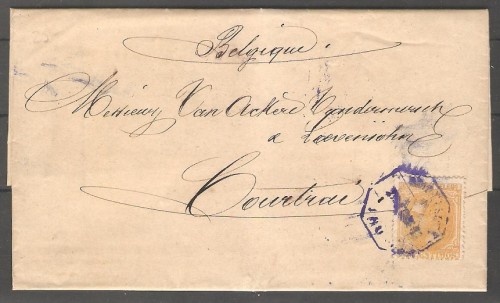 Belgique.
Messieurs Van Ackere Vandermersch
& Loevensohn
Courtrai